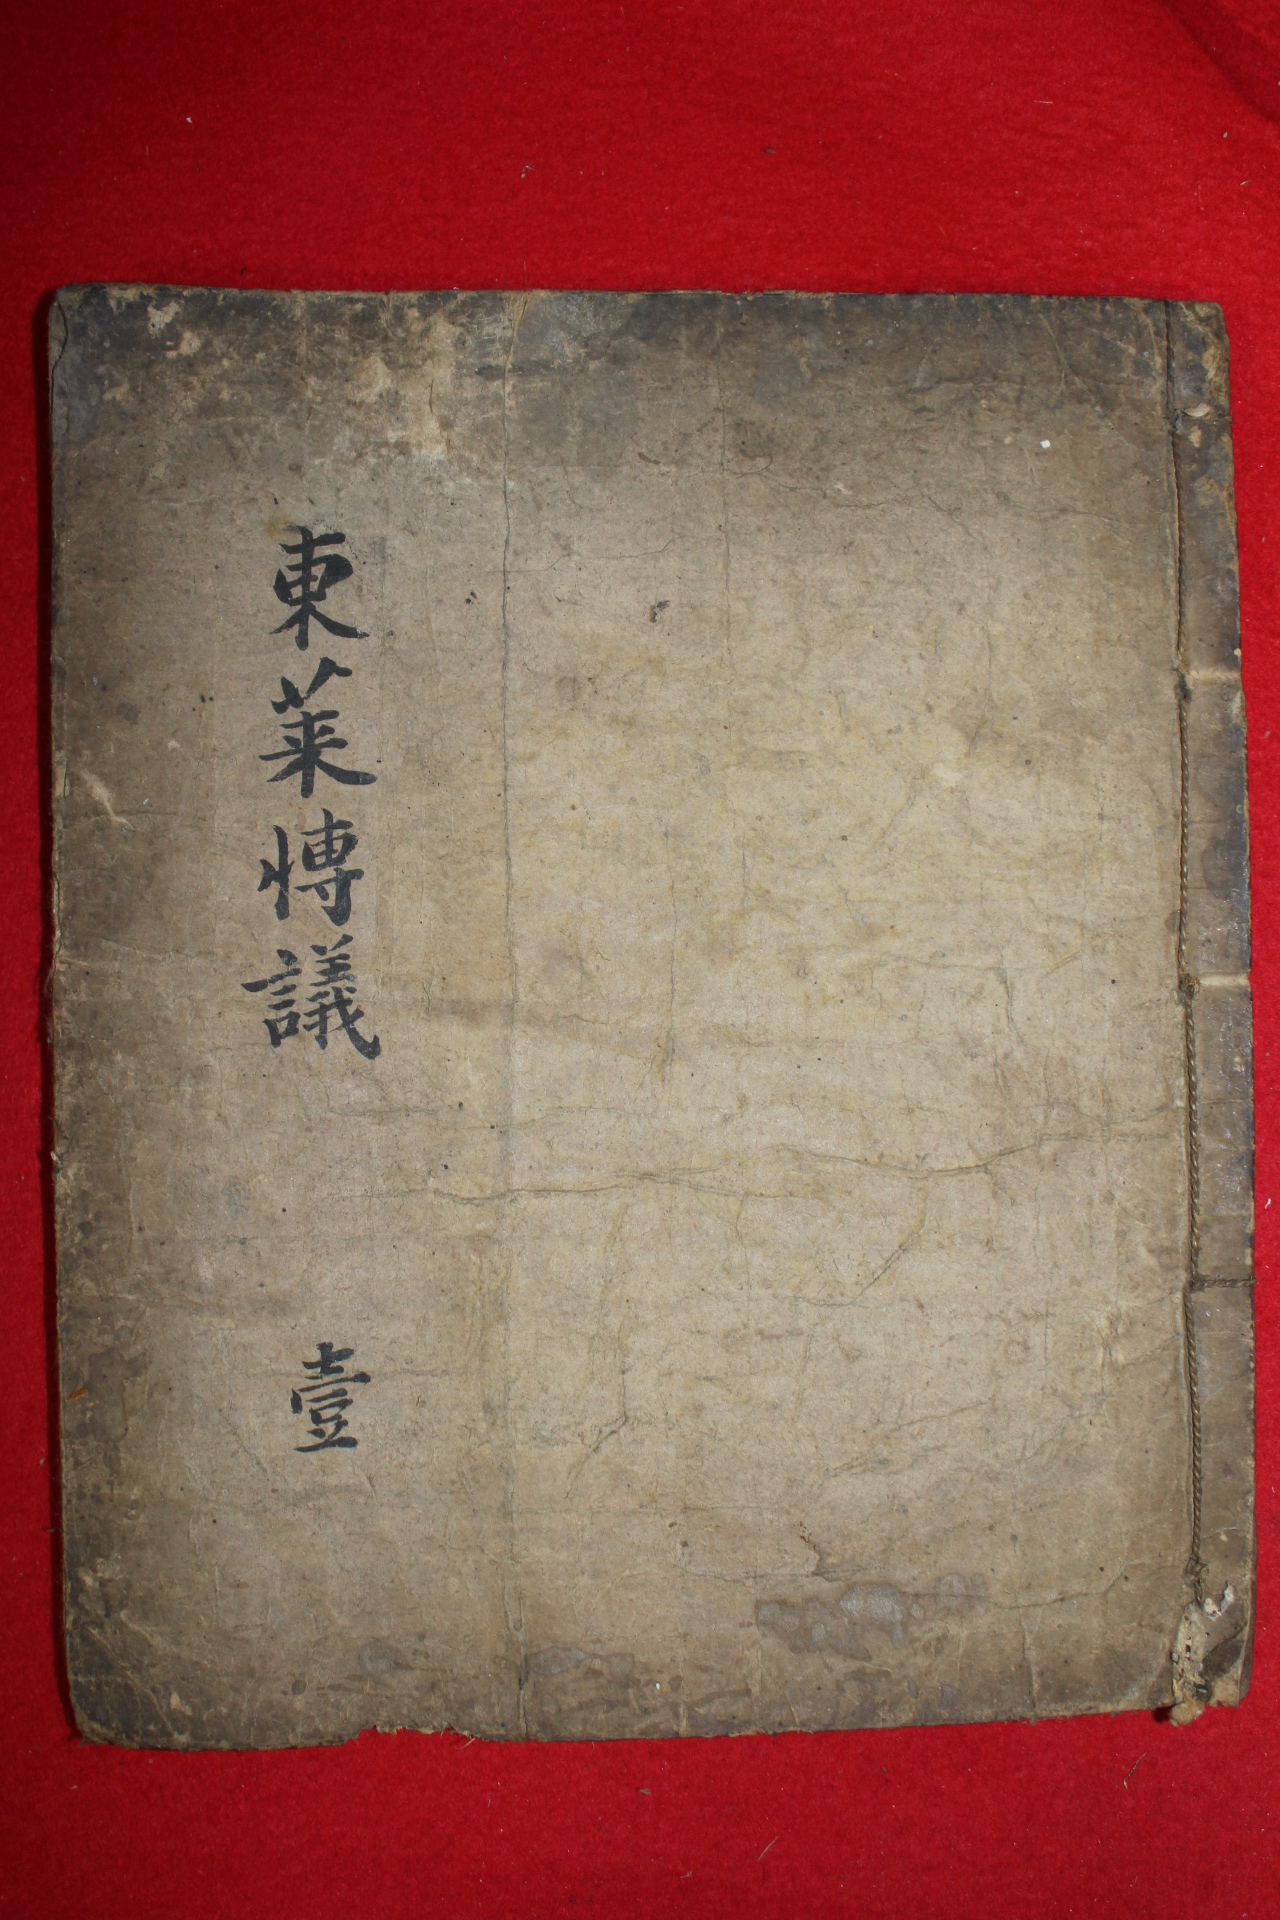 東萊博議
壹